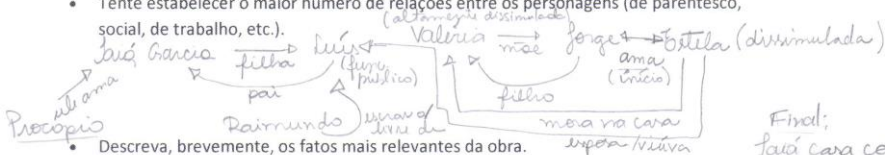 • Tente estabelecer o maior número de relações entre os personagens (de parentesco,
social, de trabalho, etc.).
(altamente dissimulada)
Iaiá Garcia filha Luís Valéria mãe Jorge Estela (dissimulada)
(func. público)
ama (início)
pai
filho
Procópio ele ama
Raimundo escravo/ livre de
mora na casa
esposa/viúva
Final:
• Descreva, brevemente, os fatos mais relevantes da obra.
Iaiá casa co